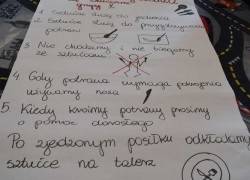 1. Sztućce służą do jedzenia
2. Sztućce służą do przygotowania
potraw
3. Nie chodzimy i nie biegamy
ze sztućcami
4. Gdy potrawa wymaga pokrojenia
używamy noża
5. Kiedy kroimy potrawy prosimy
o pomoc dorosłego
Po zjedzonym posiłku odkładamy
sztućce na talerz